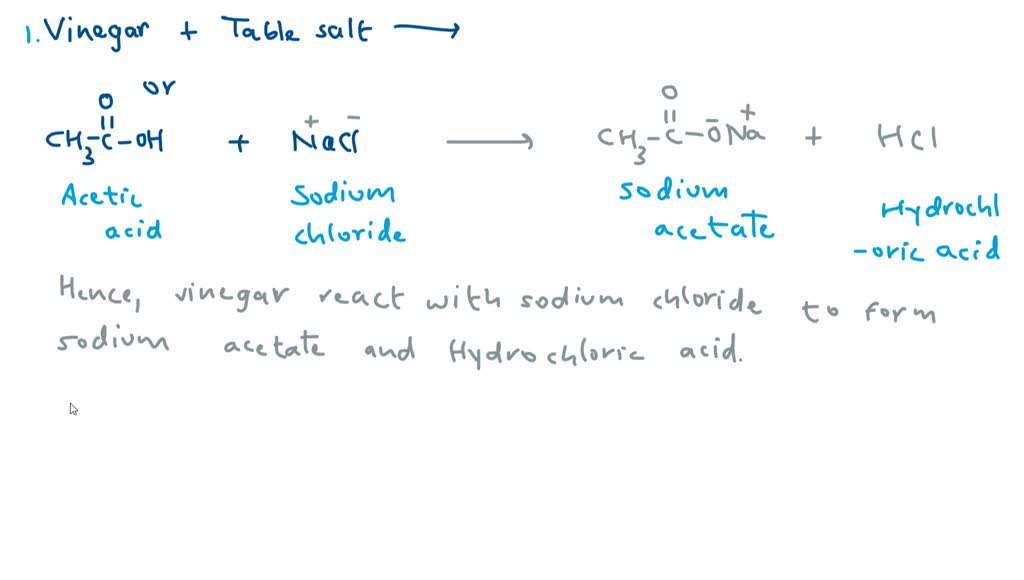 1. Vinegar + Table salt ⟶
or
O
||
CH3-C-OH + Na+Cl- ⟶ CH3-C(=O)-O-Na+ + HCl
Acetic acid
Sodium chloride
sodium acetate
Hydrochl-oric acid
Hence, vinegar react with sodium chloride to form
sodium acetate and Hydrochloric acid.